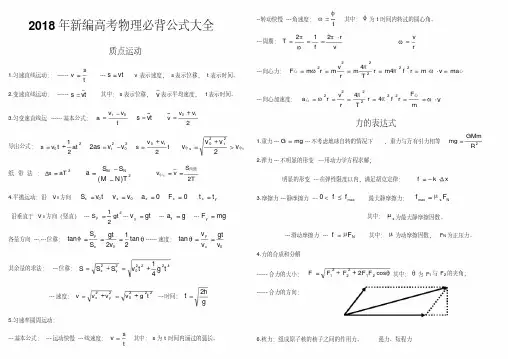 2018年新编高考物理必背公式大全
质点运动
1.匀速直线运动: ------ v = s/t --- s = vt v 表示速度, s 表示位移, t 表示时间。
2.变速直线运动: ------ s = vt 其中: s 表示位移, v 表示平均速度, t 表示时间。
3.匀变速直线运 ------ 基本公式: a = (vt − v0)/t s = vt v = (v0 + vt)/2
导出公式: s = v0t + 1/2 at² 2as = vt² − v0² s = (v0 + vt)/2 t
纸 带 法 : Δs = aT² a = (SM − SN)/(M − N)T²
4.平抛运动: 沿 v0方向 Sx = v0t vx = v0 ax = 0 Fx = 0
沿垂直于 v0方向(竖直) --- Sy = 1/2 gt² --- vy = gt --- ay = g --- Fy = mg
各量方向 ---.--位移: tanθ = Sy/Sx = gt/2v0 = 1/2 tanθ ------ 速度: tanθ = vy/vx = gt/v0
其余量的求法: ---位移: S = √(Sx² + Sy²) = √(v0²t² + 1/4 g²t⁴)
---速度: v = √(vx² + vy²) = √(v0² + g²t²) ---时间: t = √(2h/g)
5.匀速率圆周运动:
---基本公式: ---运动快慢 ---线速度: v = s/t 其中: s 为 t 时间内通过的弧长。
--转动快慢 ---角速度: ω = ϕ/t 其中: ϕ 为 t 时间内转过的圆心角。
---周期: T = 2π/ω = 1/f = 2π·r/v ω = v/r
---向心力: F = mω²r = m v²/r = m 4π²/T² r = m4π²f²r = m ω·v = ma
---向心加速度: a = ω²r = v²/r = 4π²/T² r = 4π²f²r = F/m = ω·v
力的表达式
1.重力 --- G = mg --- 不考虑地球自转的情况下 , 重力与万有引力相等 mg = GMm/R²
2.弹力 --- 不明显的形变 ---用动力学方程求解;
明显的形变 ---在弹性限度以内, 满足胡克定律: f = −k·Δx
3.摩擦力 ---静摩擦力 --- 0 ≤ f ≤ fmax 最大静摩擦力:
其中: 为最大静摩擦因数。
---滑动摩擦力 --- f = μFN 其中: μ 为动摩擦因数, FN 为正压力。
4.力的合成和分解
------合力的大小: F = √(F1² + F2² + 2F1F2cosθ) 其中: θ 为 F1 与 F2 的夹角。
------合力的方向:
5.核力: 组成原子核的核子之间的作用力。 强力、短程力